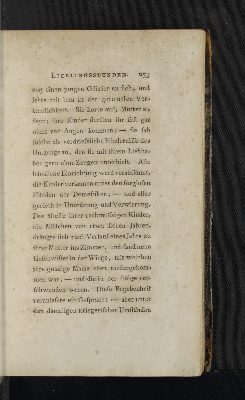 LIEBLINGSSTUNDEN. 253
zog einen jungen Offizier an sich, und
lebte mit ihm in der genauesten Ver-
traulichkeit. Sie hörte auf, Mutter zu
seyn; ihre Kinder durften ihr fast gar
nicht vor Augen kommen; — sie sah
solche als verdriesliche Hindernisse des
Umgangs an, den sie mit ihrem Liebha-
ber gern ohne Zeugen unterhielt. Alle
häusliche Einrichtung ward verabsäumt,
die Kinder verkamen unter den sorglosen
Händen der Domestiken, — und alles
gerieth in Unordnung und Verwirrung.
Das älteste ihrer rechtmäßigen Kinder,
ein Mädchen von etwa sieben Jahren,
drängte sich nach Verlauf eines Jahrs zu
ihrer Mutter ins Zimmer, und fand neue
Geschwister in der Wiege, mit welchen
die gnädige Mama eben niedergekom-
men war, — und die in der Folge ver-
schwunden waren. Diese Begebenheit
veranlaßte ein Gespräch; — aber unter
den damaligen kriegerischen Umständen